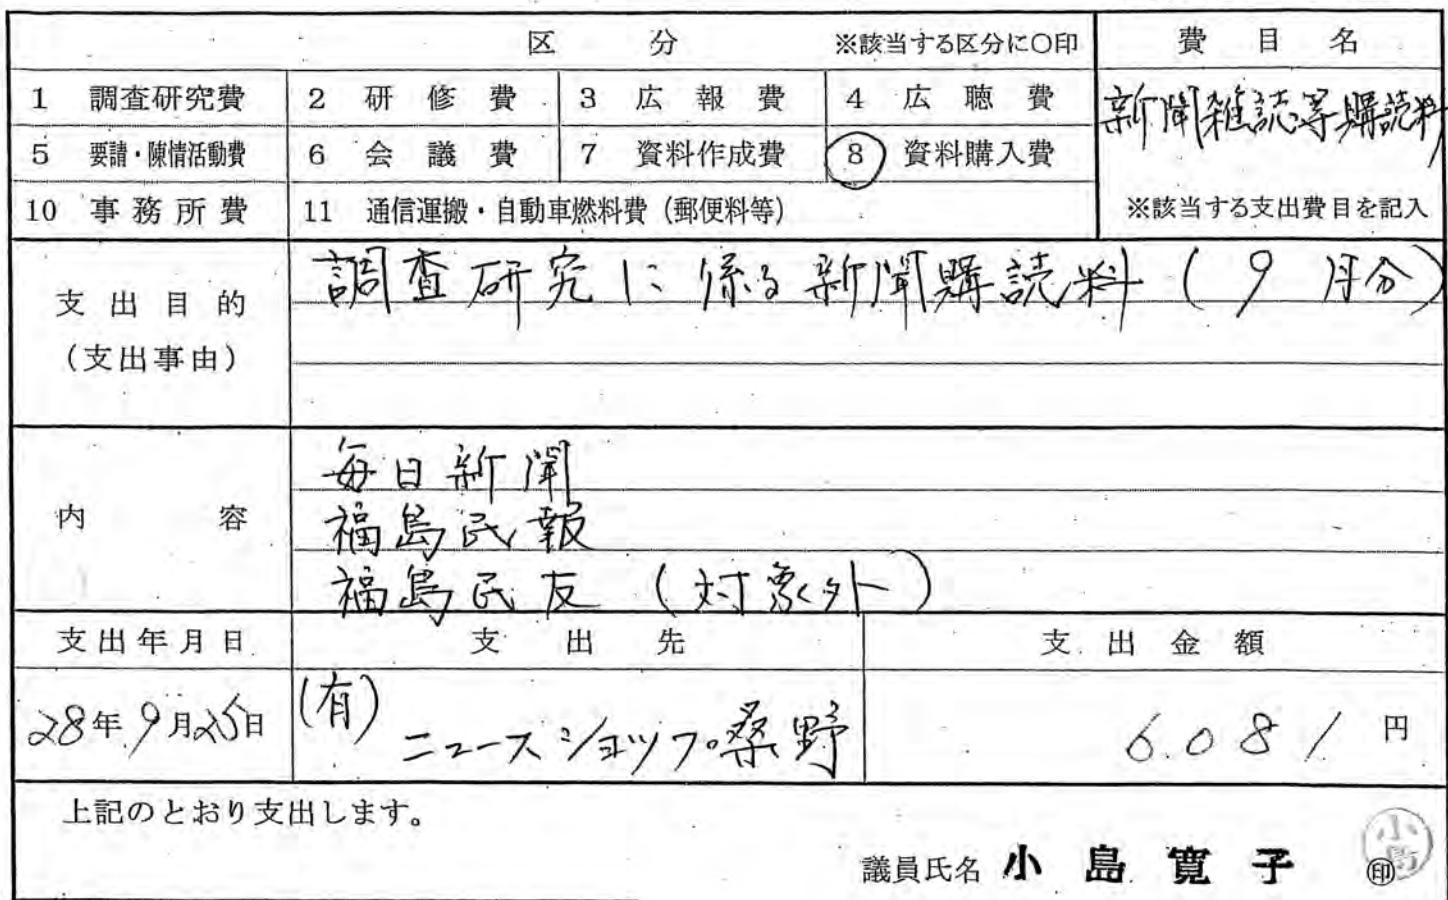 区 分 ※該当する区分に〇印 費 目 名
1 調査研究費 2 研 修 費 3 広 報 費 4 広 聴 費
新聞雑誌等購読料
5 要請・陳情活動費 6 会 議 費 7 資料作成費 8 資料購入費
10 事 務 所 費 11 通信運搬・自動車燃料費(郵便料等) ※該当する支出費目を記入
支 出 目 的
(支出事由)
調査研究に係る新聞購読料(9月分)
内 容
毎日新聞
福島民報
福島民友 (対象外)
支出年月日 支 出 先 支 出 金 額
28年9月25日 (有)ニュースショップ桑野 6.081円
上記のとおり支出します。
議員氏名 小 島 寛 子 印
小島